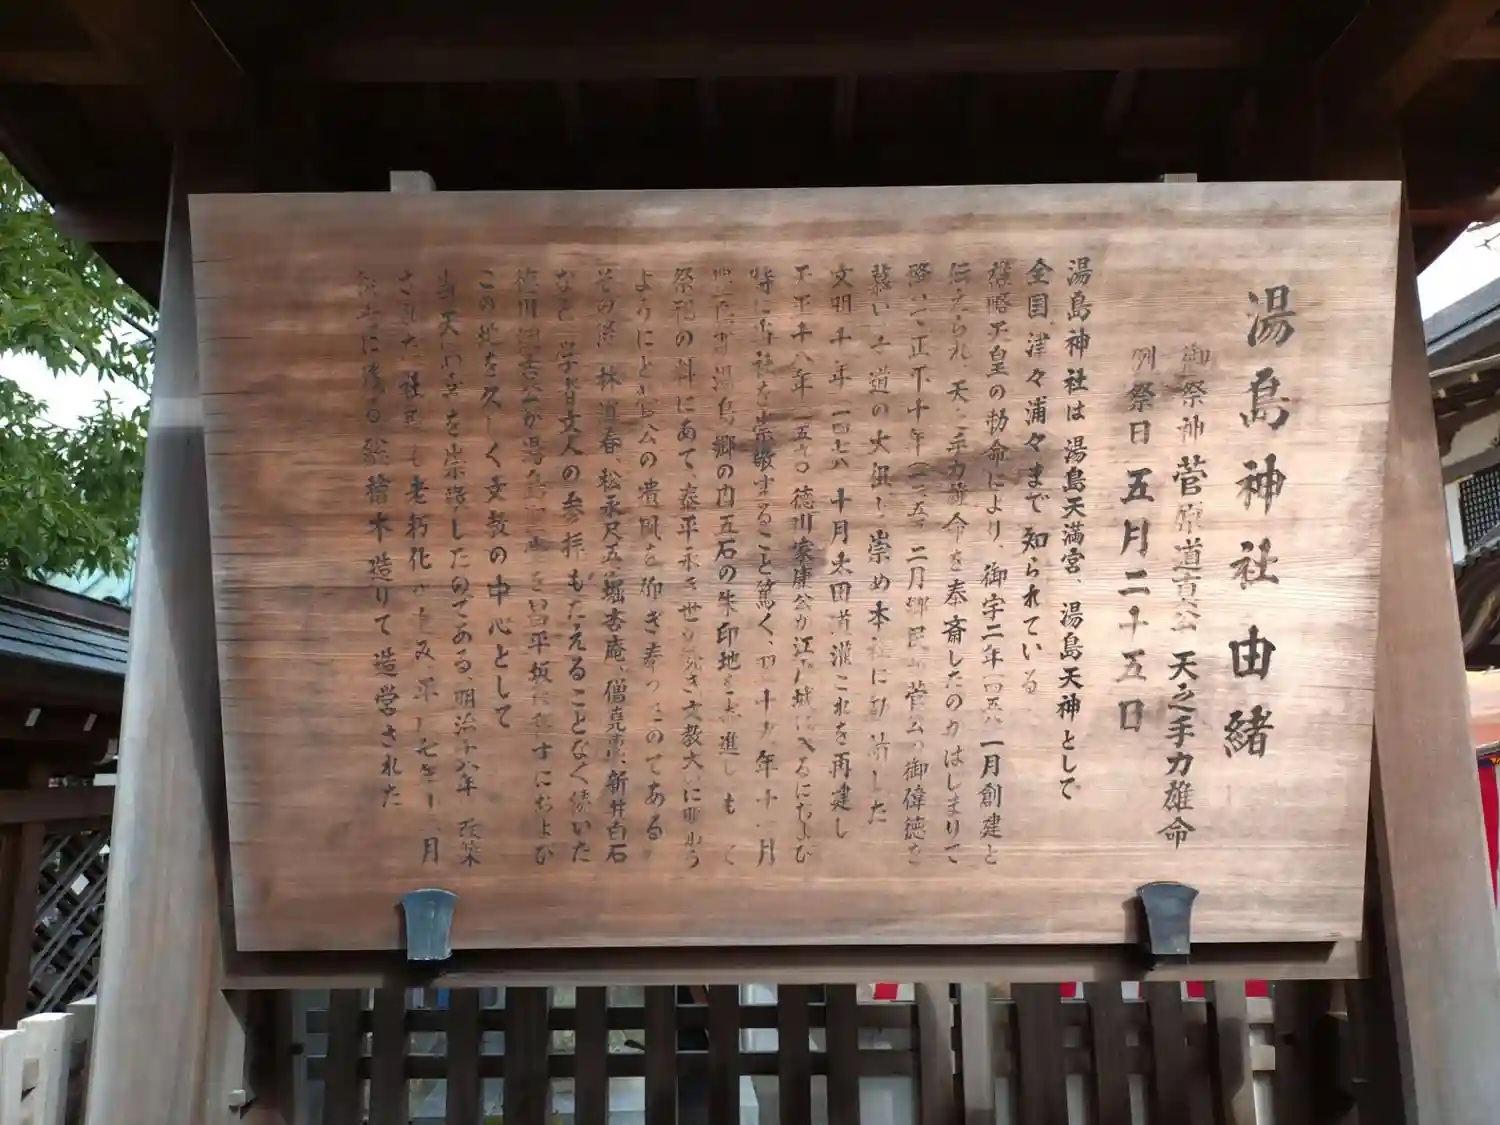 湯島神社由緒
御祭神 菅原道真公 天之手力雄命
例祭日 五月二十五日
湯島神社は湯島天満宮、湯島天神として
全国、津々浦々まで知られている
雄略天皇の勅命により、御宇二年(四五八)一月創建と
伝えられ、天之手力雄命を奉斎したのがはじまりで
降って正平十年(一三五五)二月郷民が菅公の御偉徳を
慕い文道の大祖と崇め本社に勧請した
文明十年(一四七八)十月太田道灌これを再建し
天正十八年(一五九〇)徳川家康公が江戸城に入るにおよび
特に当社を崇敬すること篤く、翌十九年十一月
湯島郷の内五石の朱印地を寄進し もって
祭祀の料にあて 泰平永き世が続き 文教大いに賑わう
ようにと菅公の遺風を仰ぎ奉ったのである
その後、林道春、松永尺五、堀杏庵、僧堯恵、新井白石
など 学者文人の参拝もたえることなく続いた
徳川綱吉公が湯島聖堂を昌平坂に移すにおよび
この地を久しく文教の中心として
当天満宮を崇拝したのである、明治十八年 改築
された社殿も老朽化が進み 平成七年十二月
総檜木造りで造営された